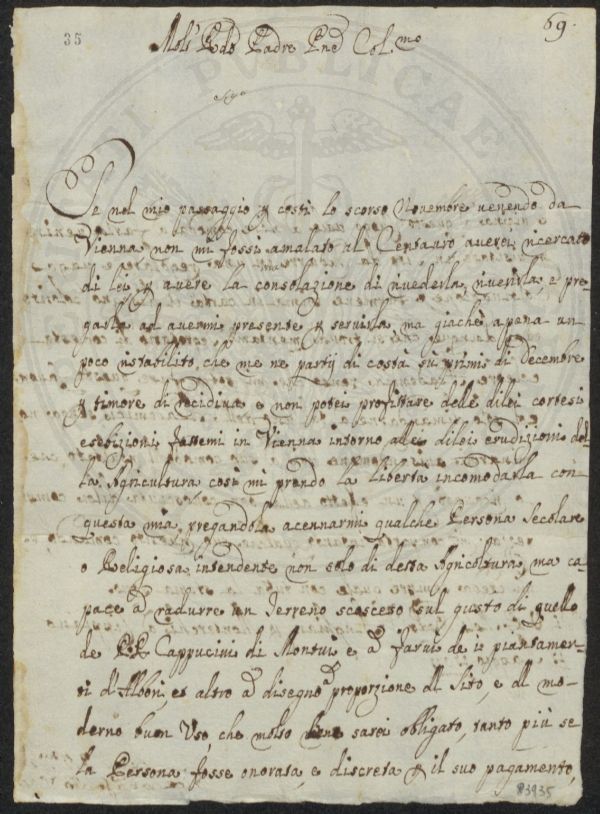 35
69.
Mol.to Rdo Padre Pne Col.mo
Se nel mio passaggio p costì lo scorso Novembre venendo da
Vienna non mi fossi amalato al Centauro averei ricercato
di lei p avere la consolazione di rivederla, riverirla, e pre=
garla ad avermi presente p servirla, ma giachè apena un
poco ristabilito, che me ne partij di costà sù primi di decembre
p timore di recidiva e non potei profittare delle dilei cortesi
esebizioni fattemi in Vienna intorno alle dilei erudizioni del=
la Agricultura così mi prendo la libertà incomodarla con
questa mia, pregandola acennarmi qualche Persona Secolare
o Religiosa intendente non solo di detta Agricoltura, ma ca=
pace à radurre un Terreno scosceso sul gusto di quello
de PP Cappucini di Montui e à farvi de i piantamen=
ti d'Albori, et altro à disegno à proporzione dl Sito, e dl mo=
derno buon Uso, che molto sarei obligato, tanto più se
la Persona fosse onorata, e discreta p il suo pagamento,
83935